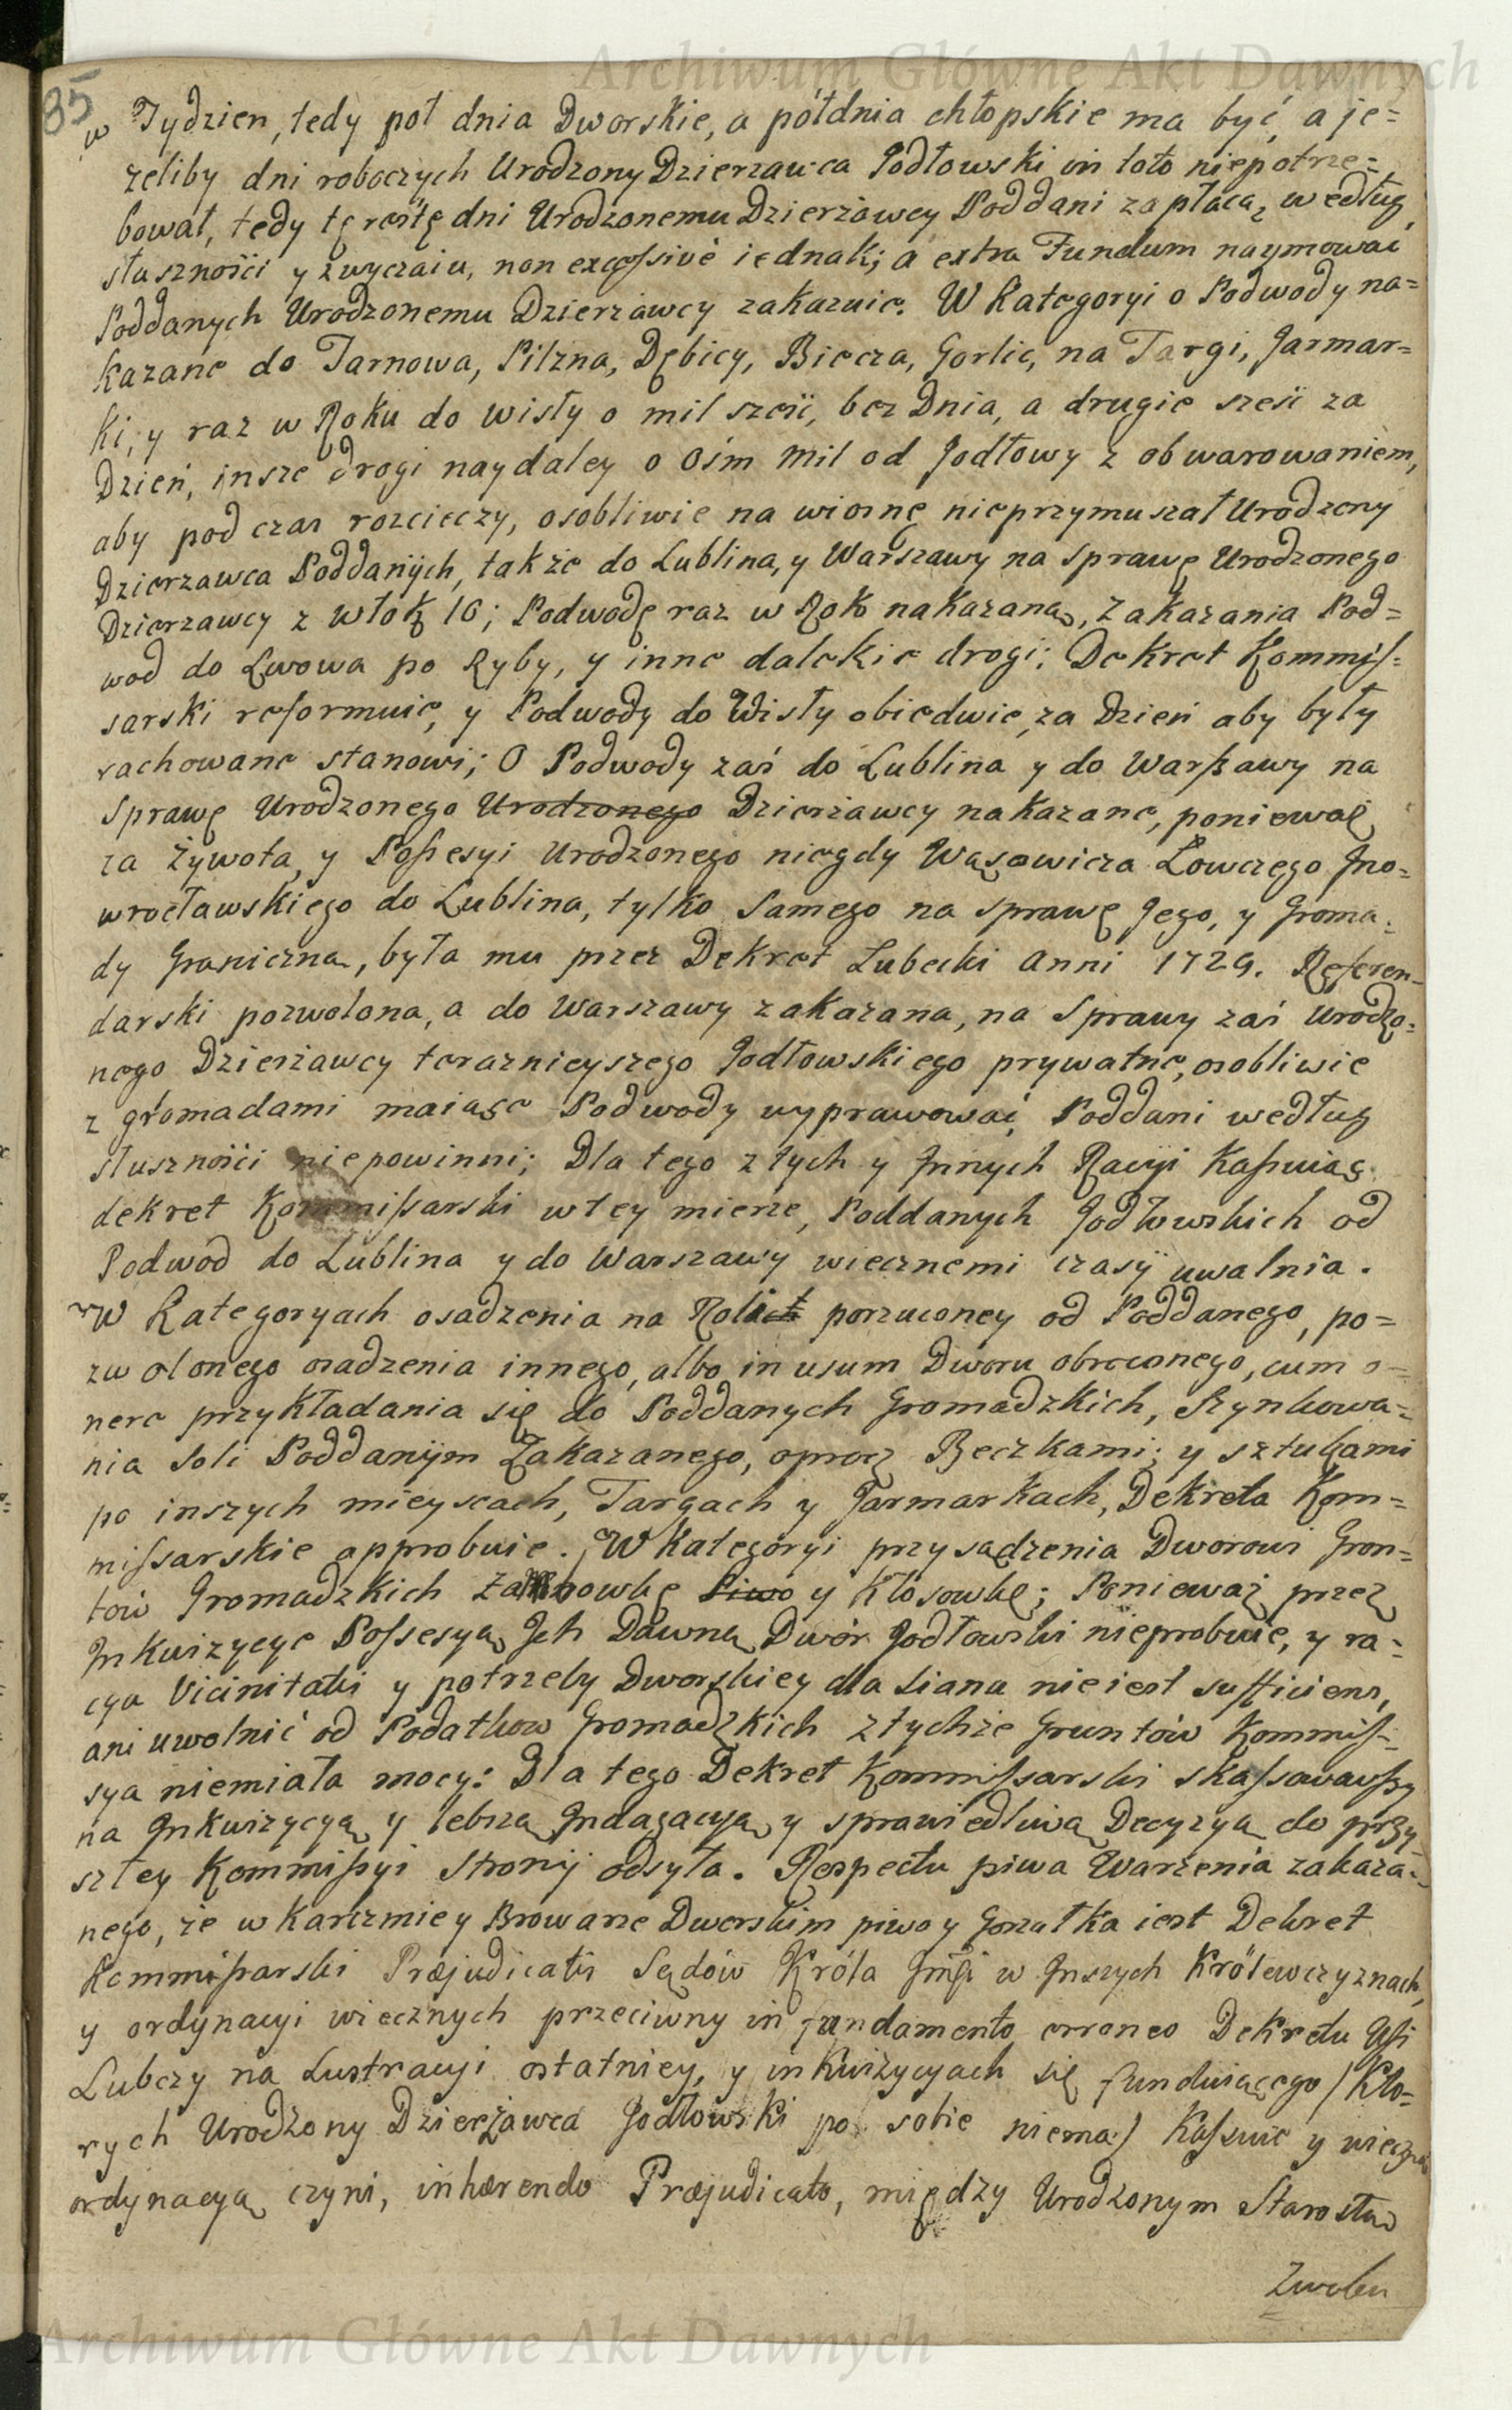 Archiwum Główne Akt Dawnych
85
w Tydzien, tedy poł dnia Dworskie, a półdnia chłopskie ma być, a je=
zeliby dni roboczych Urodzony Dzierzawca Jodłowski in toto niepotrze=
bował, tedy tę resztę dni Urodzonemu Dzierżawcy Poddani zapłacą, według
słusznośći y zwyczaiu, non excessivè iednak; a extra Fundum naymować
Poddanych Urodzonemu Dzierzawcy zakazuie. W Kategoryi o Podwody na=
kazane do Tarnowa, Pilzna, Dębicy, Biecza, Gorlic, na Targi, Jarmar=
ki, y raz w Roku do Wisły o mil sześć, bez Dnia, a drugie sześć za
Dzień, insze drogi naydaley o Ośm Mil od Jodłowy z obwarowaniem,
aby pod czas rozcieczy, osobliwie na wiosnę nieprzymuszał Urodzony
Dzierzawca Poddanÿch, także do Lublina, y Warszawy na Sprawę Urodzonego
Dzierzawcy z włok 10; Podwodę raz w Rok nakazaną, Zakazania Pod=
wod do Lwowa po Ryby, y inne dalekie drogi; Dekret Kommis=
sarski reformuie, y Podwody do Wisły obiedwie, za Dzień aby były
rachowane stanowi; O Podwody zaś do Lublina y do Warszawy na
Sprawę Urodzonego Urodzonego Dzierżawcy nakazane, poniewaź
za Żywota, y Possesyi Urodzonego niegdy Wąsowicza Łowczego Jno=
wrocławskiego do Lublina, tylko Samego na sprawę Jego, y Groma=
dy Graniczną, była mu przez Dekret Lubecki Anni 1729. Referen=
darski pozwolona, a do Warszawy zakazana, na Sprawy zaś Urodzo=
nego Dzierżawcy teraznieyszego Jodłowskiego prywatne, osobliwie
z gromadami maiące Podwody wyprawować, Poddani według
słusznośći niepowinni; Dla tego z tych y Jnnych Racyi Kassuiąc
dekret Kommissarski w tey mierze, Poddanych Jodłowskich od
Podwod do Lublina y do Warszawy wiecznemi czasÿ uwalnia.
W Kategoryach osadzenia na Roli porzuconey od Poddanego, po=
zwolonego osadzenia innego, albo in usum Dworu obroconego, cum o=
nere przykładania się do Poddanych Gromadzkich, Szynkowa=
nia Soli Poddanÿm Zakazanego, oprocz Beczkami; y sztukami
po inszych mieyscach, Targach y Jarmarkach, Dekreta Kom=
missarskie approbuie. W Kategoryi przysądzenia Dworowi Gron=
tów Gromadzkich Piwo y Kłosowkę; Ponieważ przez
Jnkwizycye Possesyą Jch Dawną Dwór Jodłowski nieprobuie, y ra=
cya Vicinitatis y potrzeby Dworskiey dla Siana nieiest sufficiens,
ani uwolnić od Podatkow Gromadzkich z tychże Gruntów Kommis=
sya niemiała mocy: Dla tego Dekret Kommissarski skassowawszy
na Jnkwizycyą y lebszą Jndagacyą y sprawiedliwą Decyzyą do przy=
szłey Kommissyi Stronÿ odsyła. Respectu piwa Warzenia zakaza=
nego, że w Karczmie y Browarze Dworskim piwo y Gorzałka iest Dekret
Kommissarski Præjudicatis Sądów Króla Jmci w Jnszych Królewczyznach,
y ordynacyi wiecznych przeciwny in fundamento erroneo Dekretu Wsi
Lubczy na Lustracyi ostatniey, y inkwizycyach się funduiącego /Któ=
rych Urodzony Dzierżawca Jodłowski po sobie niema/ Kassuie y wieczną
ordynacyą czyni, inhærendo Præjudicato, między Urodzonym Starostą
Zwolen
Archiwum Główne Akt Dawnych